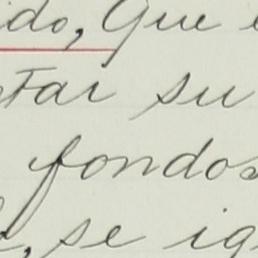 ido, que
tar su
fondos
, se ig